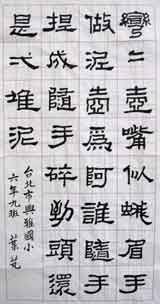 彎二壺嘴似蛾眉手
做泥壺爲阿誰隨手
捏成隨手碎到頭還
是弌堆泥
台北市興雅國小
六年九班 葉